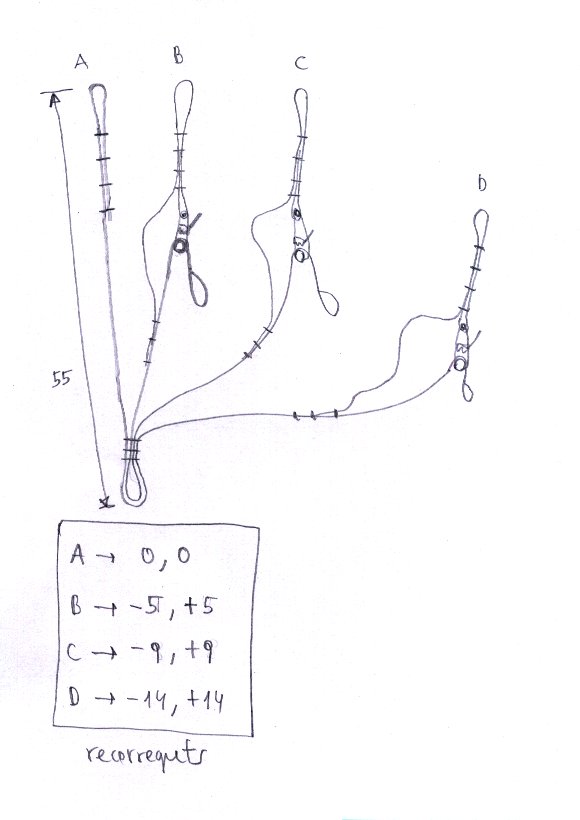 A
B
C
D
55
A → 0, 0
B → -5, +5
C → -9, +9
D → -14, +14
recorreguts